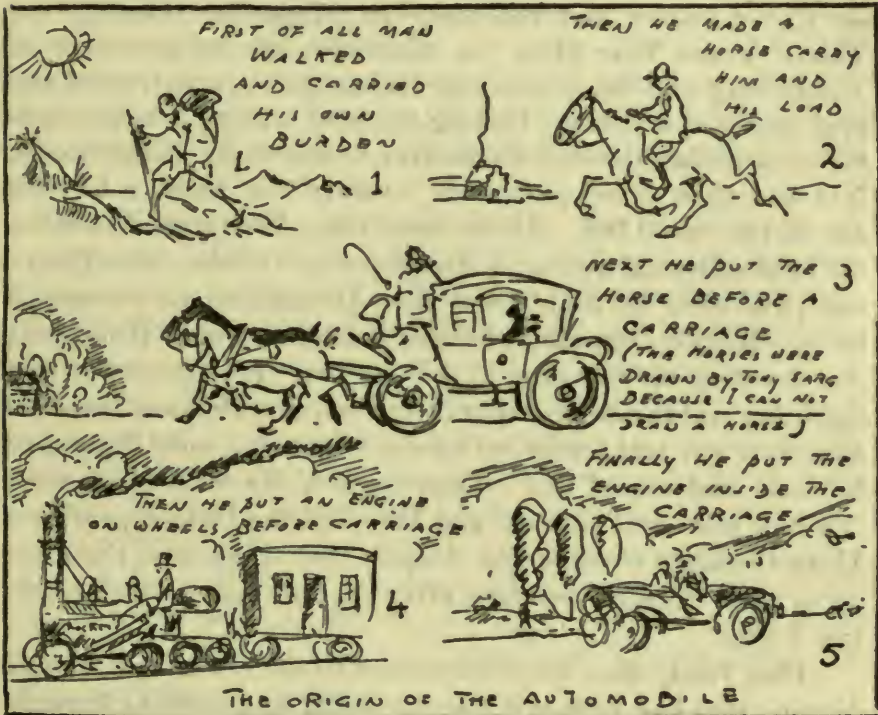 FIRST OF ALL MAN
WALKED
AND CARRIED
HIS OWN
BURDEN
1
THEN HE MADE A
HORSE CARRY
HIM AND
HIS LOAD
2
NEXT HE PUT THE
HORSE BEFORE A
CARRIAGE
(THE HORSES WERE
DRAWN BY TONY SARG
BECAUSE I CAN NOT
DRAW A HORSE)
3
THEN HE PUT AN ENGINE
ON WHEELS BEFORE CARRIAGE
4
FINALLY HE PUT THE
ENGINE INSIDE THE
CARRIAGE
5
THE ORIGIN OF THE AUTOMOBILE